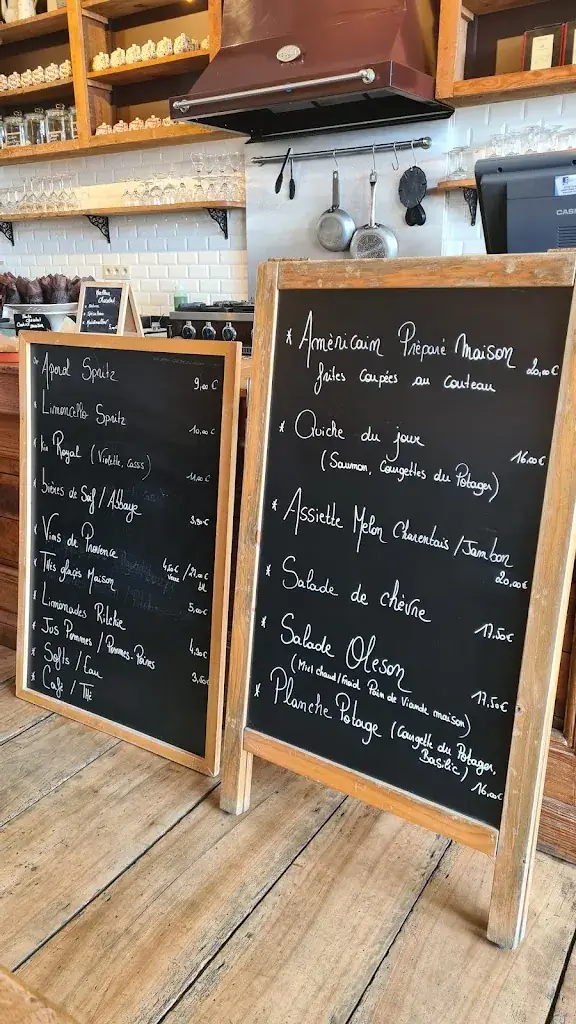 Aperol Spritz 9,00 €
Limoncello Spritz 10,00 €
Kir Royal (Violette, Casss) 11,00 €
bières de Soif / Abbaye
Vins de Provence
Verre
Thés glacés Maison 5,00 €
Limonades Ritchie
Jus Pommes / Pommes-Poires 4,90 €
Softs / Eau
Café / Thé
* Amèricain Préparé Maison 20,00 €
frites coupées au couteau
* Quiche du jour 16,00 €
(Saumon, Courgettes du Potager)
* Assiette Melon Charentais / Jambon 20,00 €
* Salade de chèvre 17,50 €
* Salade Oleson 17,50 €
(Miel chaud/froid Pain de Viande maison)
* Planche Potage (Courgette du Potager,
Basilic) 16,00 €